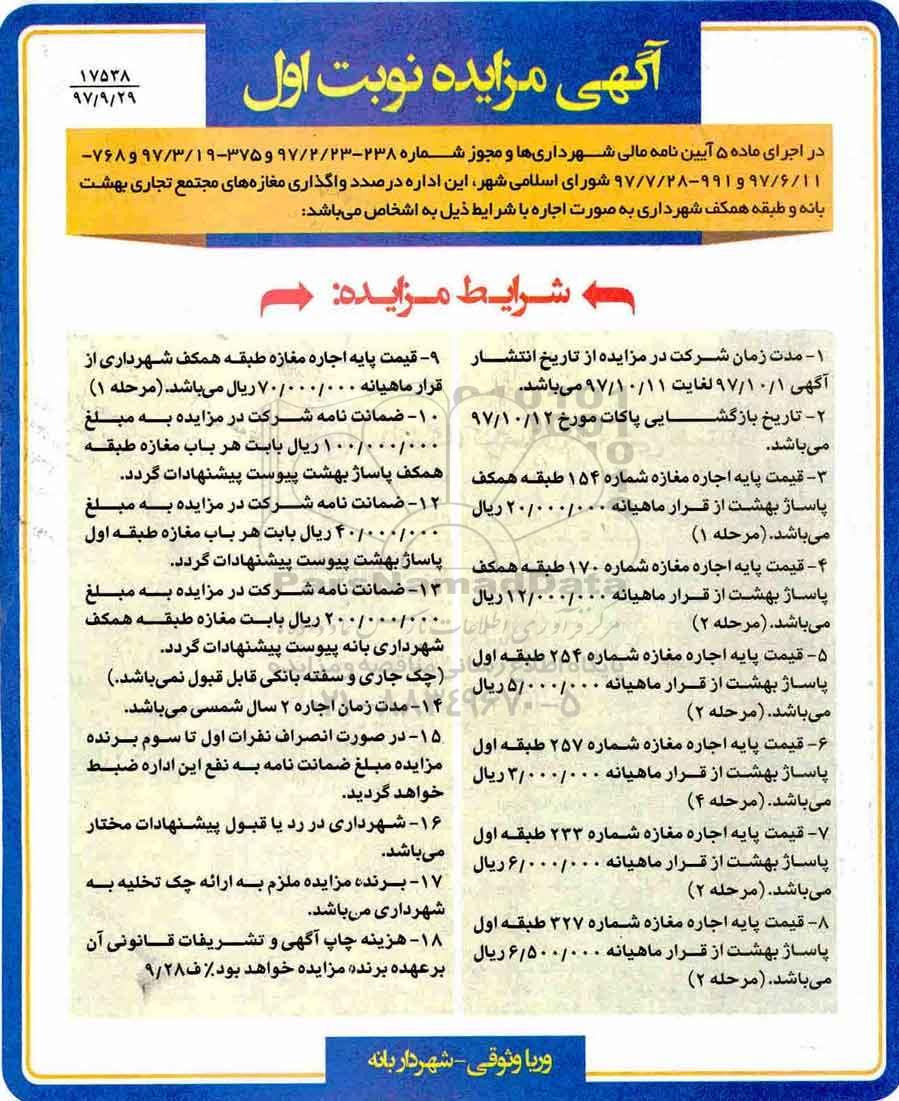 آگهی مزایده نوبت اول
۱۷۵۳۸
۹۷/۹/۲۹
در اجرای ماده ۵ آیین نامه مالی شهرداری‌ها و مجوز شماره ۲۳۸-۹۷/۲/۲۳ و ۳۷۵-۹۷/۳/۱۹ و ۷۶۸-
۹۷/۶/۱۱ و ۹۹۱-۹۷/۷/۲۸ شورای اسلامی شهر، این اداره درصدد واگذاری مغازه‌های مجتمع تجاری بهشت
بانه و طبقه همکف شهرداری به صورت اجاره با شرایط ذیل به اشخاص می‌باشد:
شرایط مزایده:
۱- مدت زمان شرکت در مزایده از تاریخ انتشار
آگهی ۹۷/۱۰/۱ لغایت ۹۷/۱۰/۱۱ می‌باشد.
۲- تاریخ بازگشایی پاکات مورخ ۹۷/۱۰/۱۲
می‌باشد.
۳- قیمت پایه اجاره مغازه شماره ۱۵۴ طبقه همکف
پاساژ بهشت از قرار ماهیانه ۲۰/۰۰۰/۰۰۰ ریال
می‌باشد. (مرحله ۱)
۴- قیمت پایه اجاره مغازه شماره ۱۷۰ طبقه همکف
پاساژ بهشت از قرار ماهیانه ۱۲/۰۰۰/۰۰۰ ریال
می‌باشد. (مرحله ۲)
۵- قیمت پایه اجاره مغازه شماره ۲۵۴ طبقه اول
پاساژ بهشت از قرار ماهیانه ۵/۰۰۰/۰۰۰ ریال
می‌باشد. (مرحله ۲)
۶- قیمت پایه اجاره مغازه شماره ۲۵۷ طبقه اول
پاساژ بهشت از قرار ماهیانه ۳/۰۰۰/۰۰۰ ریال
می‌باشد. (مرحله ۴)
۷- قیمت پایه اجاره مغازه شماره ۲۳۳ طبقه اول
پاساژ بهشت از قرار ماهیانه ۶/۰۰۰/۰۰۰ ریال
می‌باشد. (مرحله ۲)
۸- قیمت پایه اجاره مغازه شماره ۳۲۷ طبقه اول
پاساژ بهشت از قرار ماهیانه ۶/۵۰۰/۰۰۰ ریال
می‌باشد. (مرحله ۲)
۹- قیمت پایه اجاره مغازه طبقه همکف شهرداری از
قرار ماهیانه ۷۰/۰۰۰/۰۰۰ ریال می‌باشد. (مرحله ۱)
۱۰- ضمانت نامه شرکت در مزایده به مبلغ
۱۰۰/۰۰۰/۰۰۰ ریال بابت هر باب مغازه طبقه
همکف پاساژ بهشت پیوست پیشنهادات گردد.
۱۲- ضمانت نامه شرکت در مزایده به مبلغ
۴۰/۰۰۰/۰۰۰ ریال بابت هر باب مغازه طبقه اول
پاساژ بهشت پیوست پیشنهادات گردد.
۱۳- ضمانت نامه شرکت در مزایده به مبلغ
۲۰۰/۰۰۰/۰۰۰ ریال بابت مغازه طبقه همکف
شهرداری بانه پیوست پیشنهادات گردد.
(چک جاری و سفته بانکی قابل قبول نمی‌باشد.)
۱۴- مدت زمان اجاره ۲ سال شمسی می‌باشد.
۱۵- در صورت انصراف نفرات اول تا سوم برنده
مزایده مبلغ ضمانت نامه به نفع این اداره ضبط
خواهد گردید.
۱۶- شهرداری در رد یا قبول پیشنهادات مختار
می‌باشد.
۱۷- برنده مزایده ملزم به ارائه چک تخلیه به
شهرداری می‌باشد.
۱۸- هزینه چاپ آگهی و تشریفات قانونی آن
برعهده برنده مزایده خواهد بود٪ ف ۹/۲۸
ParsNamadData
۰۲۱-۸۸۳۴۹۶۷۰-۵
وریا وثوقی - شهردار بانه